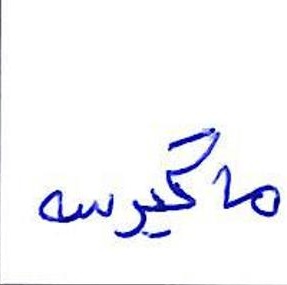 ماگیرسه